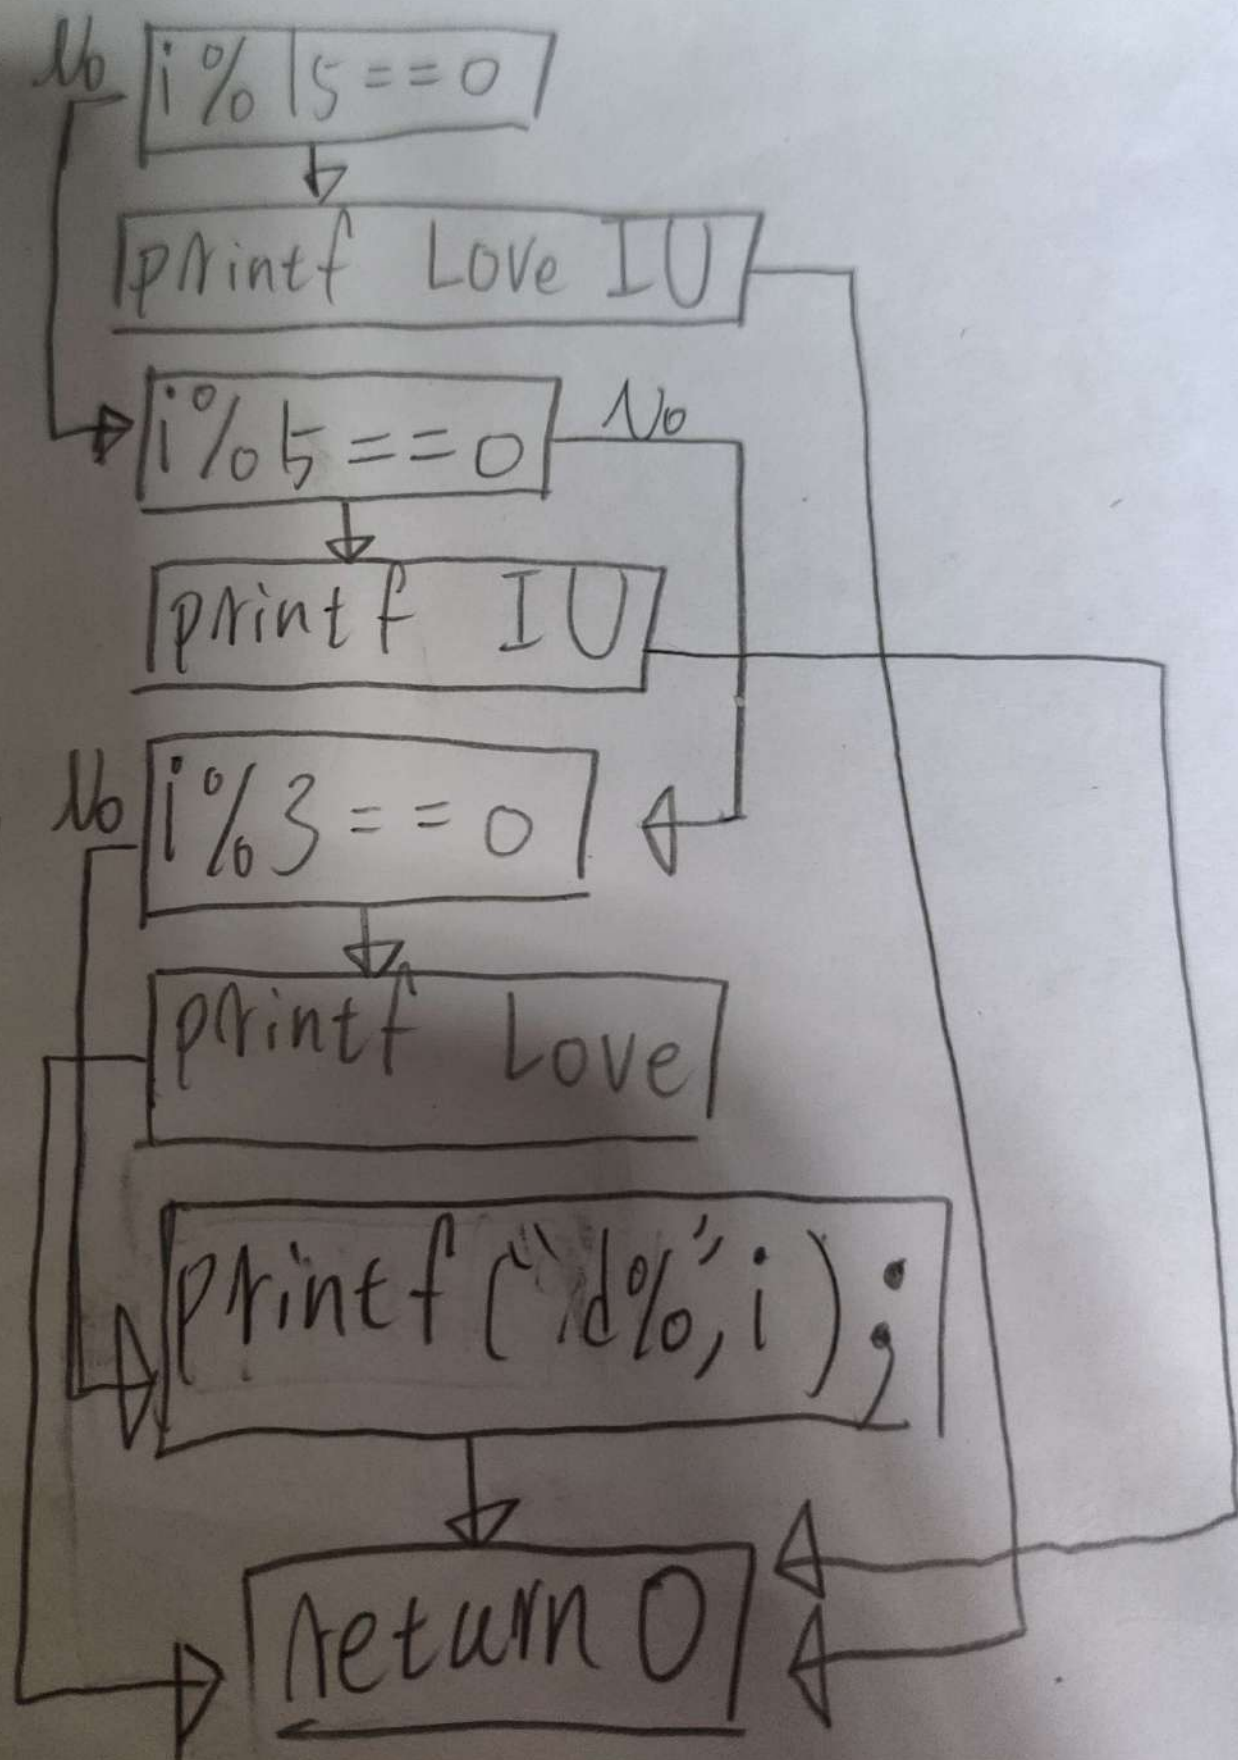 No i%15==0
printf Love IU
i%5==0 No
printf IU
No i%3==0
printf Love
printf("d%",i);
return 0